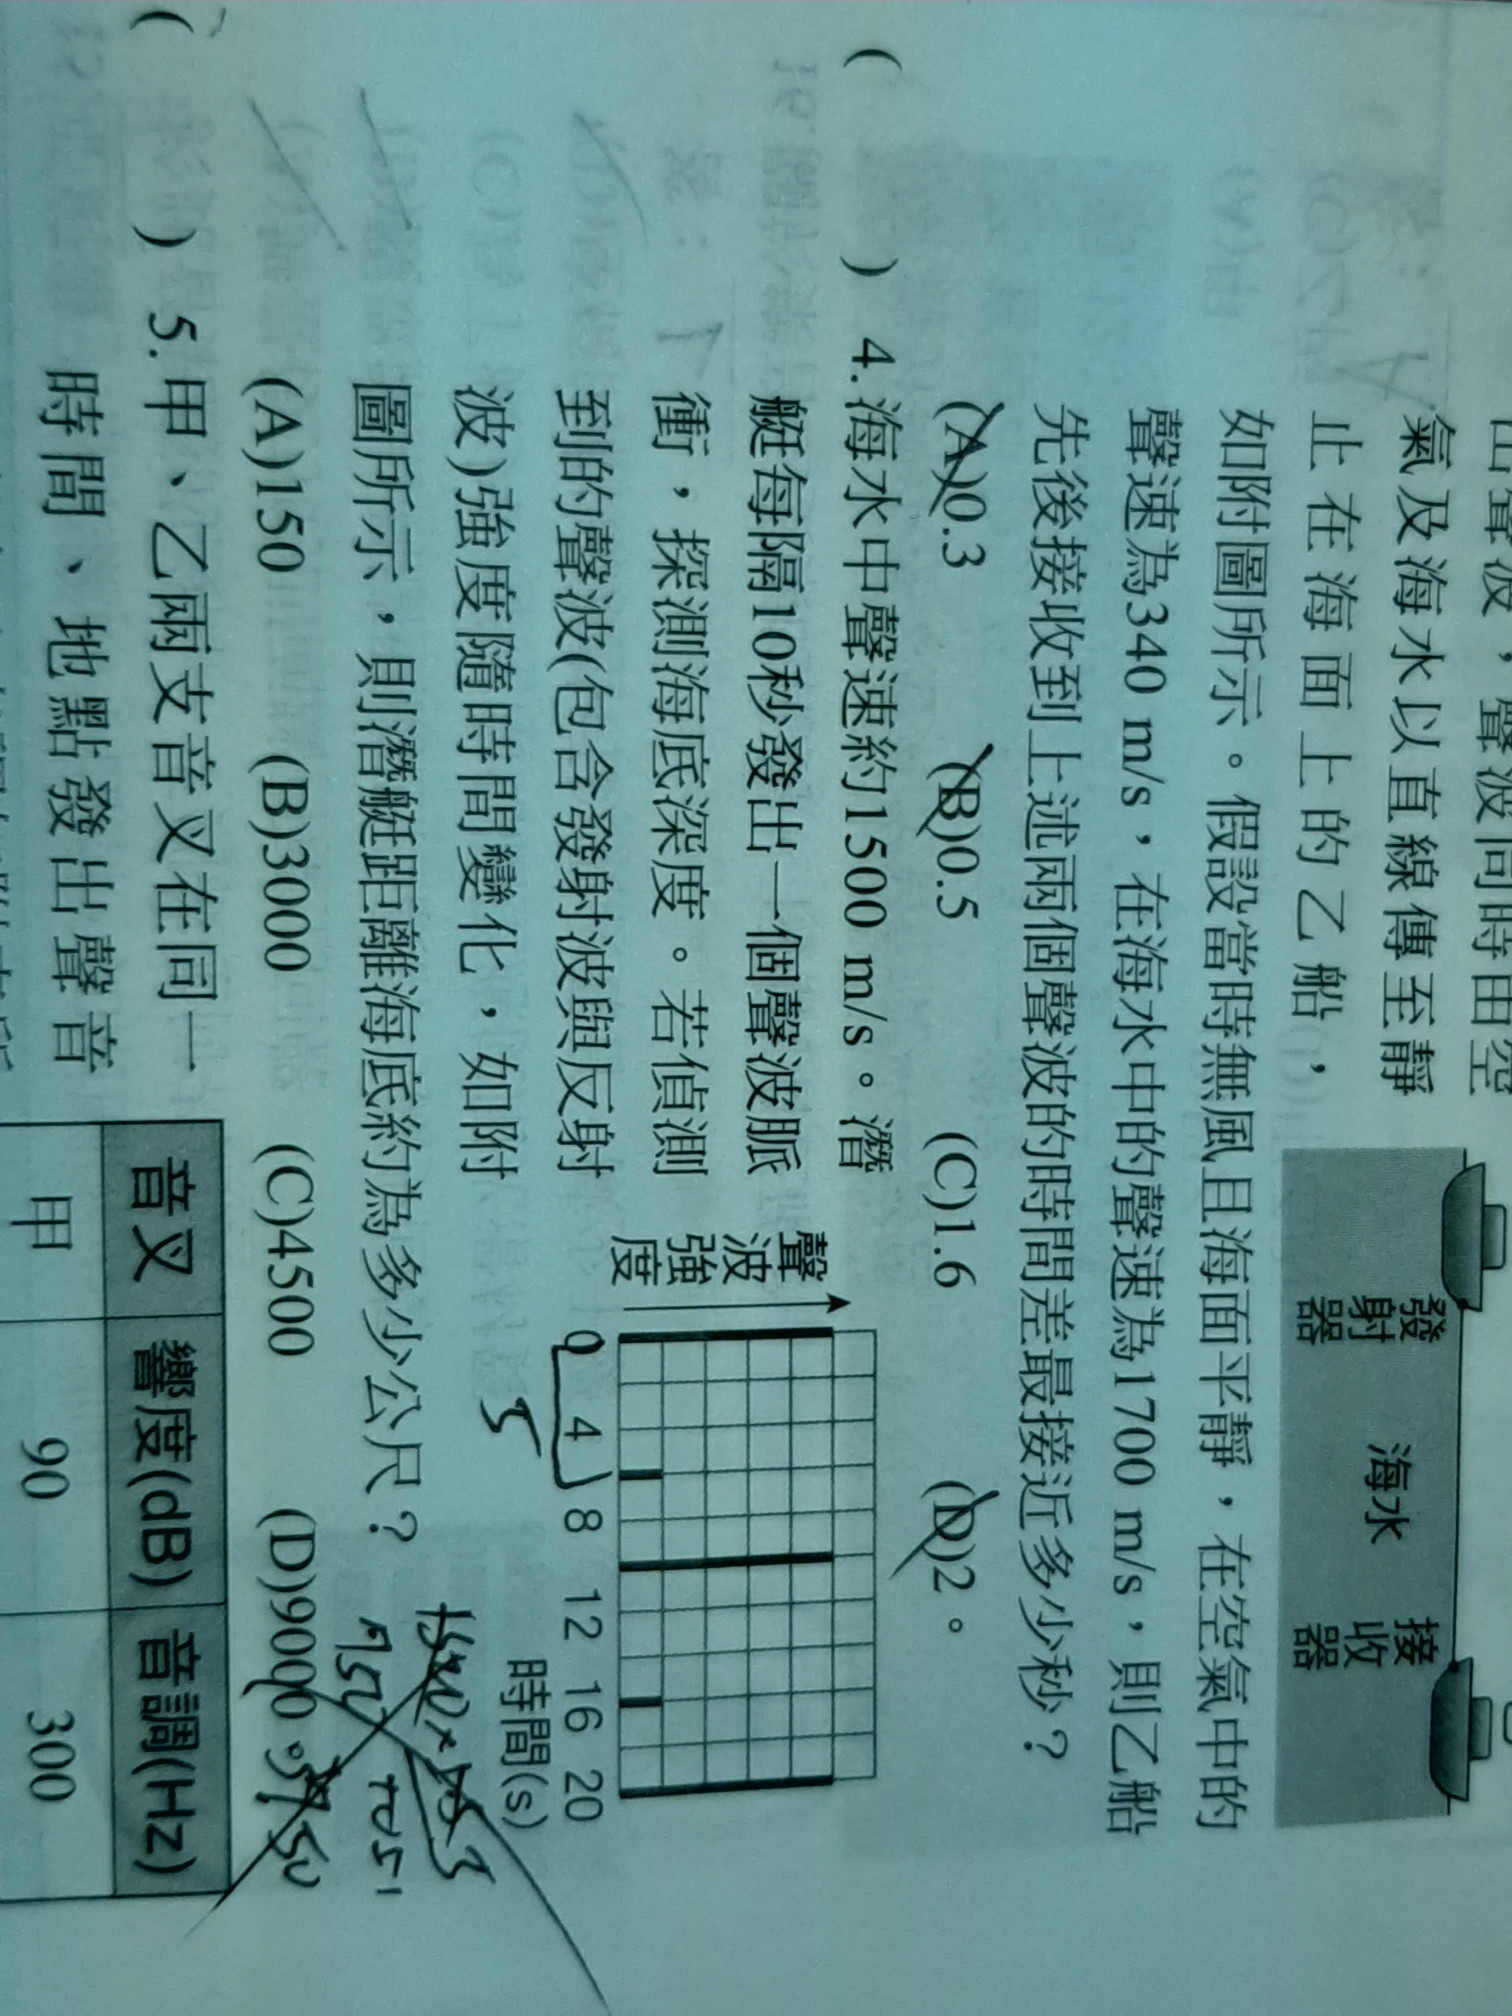 氣及海水以直線傳至靜
止在海面上的乙船,
如附圖所示。假設當時無風且海面平靜,在空氣中的
聲速為340 m/s,在海水中的聲速為1700 m/s,則乙船
先後接收到上述兩個聲波的時間差最接近多少秒?
(A)0.3 (B)0.5 (C)1.6 (D)2。
發射器 海水 接收器
( ) 4.海水中聲速約1500 m/s。潛
艇每隔10秒發出一個聲波脈
衝,探測海底深度。若偵測
到的聲波(包含發射波與反射
波)強度隨時間變化,如附
圖所示,則潛艇距離海底約為多少公尺?
(A)150 (B)3000 (C)4500 (D)9000。
聲波強度
0 4 8 12 16 20
時間(s)
5
( ) 5.甲、乙兩支音叉在同一
時間、地點發出聲音
音叉 響度(dB) 音調(Hz)
甲 90 300
(